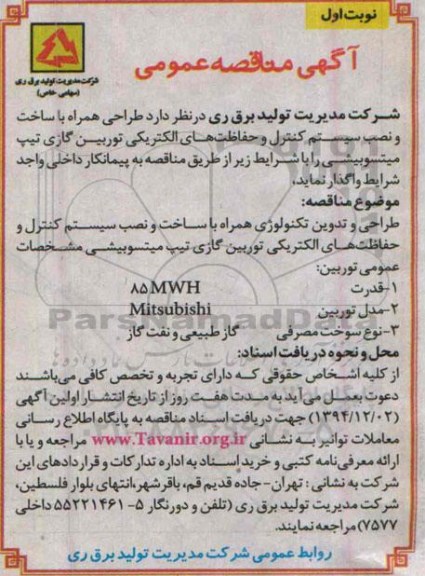 نوبت اول
آگهی مناقصه عمومی
شرکت مدیریت تولید برق ری
(سهامی خاص)
شرکت مدیریت تولید برق ری درنظر دارد طراحی همراه با ساخت
و نصب سیستم کنترل و حفاظت‌های الکتریکی توربین گازی تیپ
میتسوبیشی را با شرایط زیر از طریق مناقصه به پیمانکار داخلی واجد
شرایط واگذار نماید،
موضوع مناقصه:
طراحی و تدوین تکنولوژی همراه با ساخت و نصب سیستم کنترل و
حفاظت‌های الکتریکی توربین گازی تیپ میتسوبیشی مشخصات
عمومی توربین:
۱-قدرت ۸۵MWH
۲-مدل توربین Mitsubishi
۳-نوع سوخت مصرفی گاز طبیعی و نفت گاز
محل و نحوه دریافت اسناد:
از کلیه اشخاص حقوقی که دارای تجربه و تخصص کافی می‌باشند
دعوت بعمل می‌آید به مدت هفت روز از تاریخ انتشار اولین آگهی
(۱۳۹۴/۱۲/۰۲) جهت دریافت اسناد مناقصه به پایگاه اطلاع رسانی
معاملات توانیر به نشانی www.Tavanir.org.ir مراجعه و یا با
ارائه معرفی‌نامه کتبی و خرید اسناد به اداره تدارکات و قراردادهای این
شرکت به نشانی: تهران-جاده قدیم قم، باقرشهر، انتهای بلوار فلسطین،
شرکت مدیریت تولید برق ری (تلفن و دورنگار ۵-۵۵۲۲۱۴۶۱ داخلی
۷۵۷۷) مراجعه نمایند.
روابط عمومی شرکت مدیریت تولید برق ری
ParsNamadData